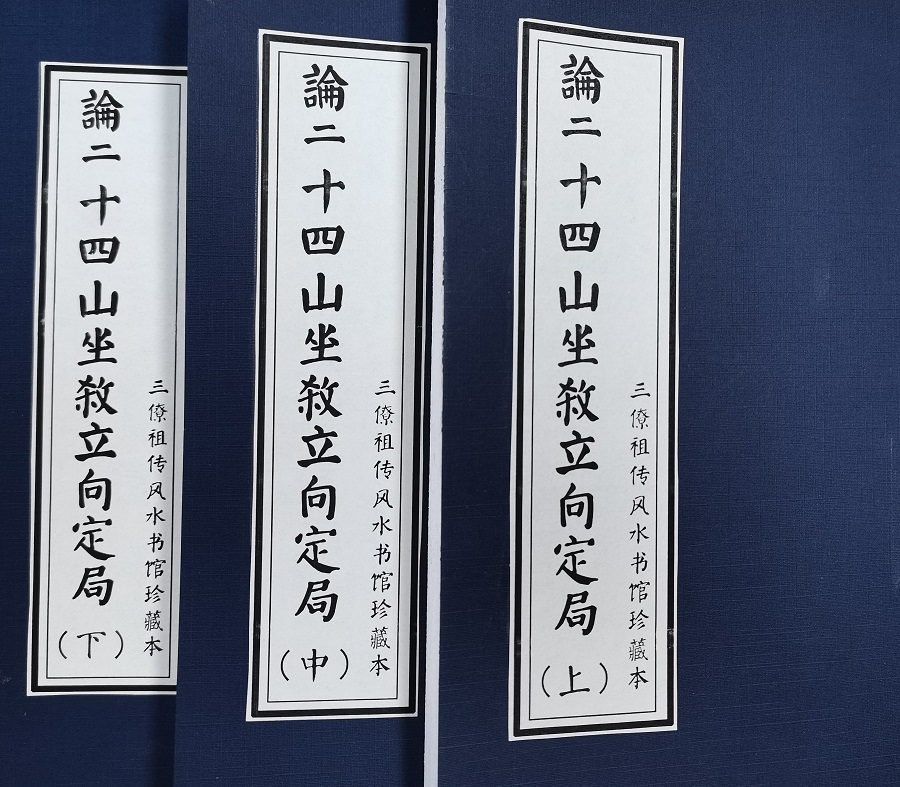 論二十四山坐殺立向定局（上）
三僚祖传风水书馆珍藏本
論二十四山坐殺立向定局（中）
三僚祖传风水书馆珍藏本
論二十四山坐殺立向定局（下）
三僚祖传风水书馆珍藏本